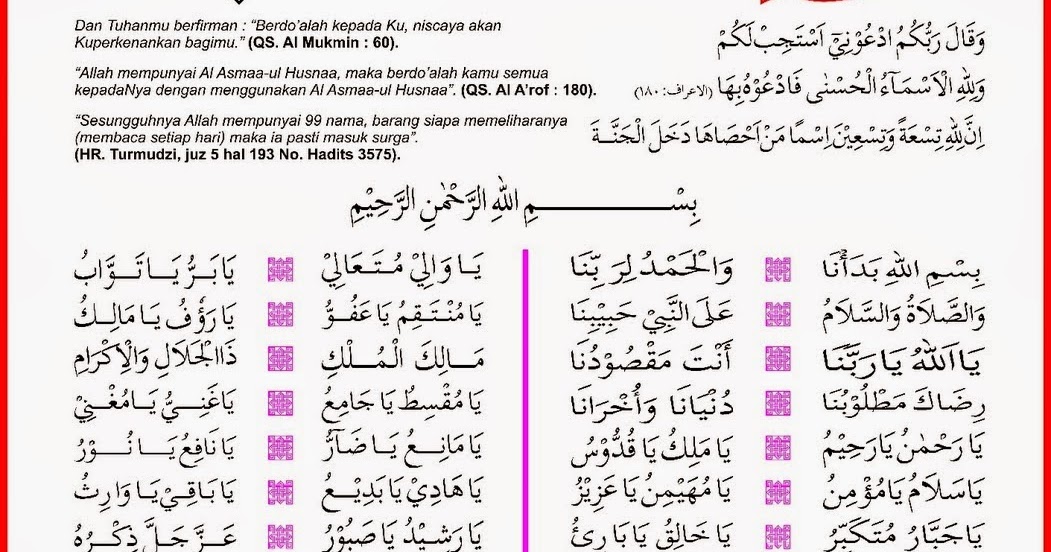 Dan Tuhanmu berfirman : “Berdo’alah kepada Ku, niscaya akan
Kuperkenankan bagimu.” (QS. Al Mukmin : 60).
وَقَالَ رَبُّكُمُ ادْعُوْنِيْٓ اَسْتَجِبْ لَكُمْ
“Allah mempunyai Al Asmaa-ul Husnaa, maka berdo’alah kamu semua
kepadaNya dengan menggunakan Al Asmaa-ul Husnaa”. (QS. Al A’rof : 180).
وَلِلّٰهِ الْاَسْمَآءُ الْحُسْنٰى فَادْعُوْهُ بِهَا (الاعراف: ١٨٠)
“Sesungguhnya Allah mempunyai 99 nama, barang siapa memeliharanya
(membaca setiap hari) maka ia pasti masuk surga”.
(HR. Turmudzi, juz 5 hal 193 No. Hadits 3575).
اِنَّ لِلّٰهِ تِسْعَةً وَتِسْعِيْنَ اِسْمًا مَنْ اَحْصَاهَا دَخَلَ الْجَنَّةَ
بِسْمِ اللهِ الرَّحْمٰنِ الرَّحِيْمِ
بِسْمِ اللهِ بَدَأْنَا وَالْحَمْدُ لِرَبِّنَا
وَالصَّلَاةُ وَالسَّلَامُ عَلَى النَّبِيْ حَبِيْبِنَا
يَا اَللهُ يَا رَبَّنَا أَنْتَ مَقْصُوْدُنَا
رِضَاكَ مَطْلُوْبُنَا دُنْيَانَا وَأُخْرَانَا
يَا رَحْمٰنُ يَا رَحِيْمُ يَا مَلِكُ يَا قُدُّوْسُ
يَا سَلَامُ يَا مُؤْمِنُ يَا مُهَيْمِنُ يَا عَزِيْزُ
يَا جَبَّارُ مُتَكَبِّرُ يَا خَالِقُ يَا بَارِئُ
يَا وَالِيْ مُتَعَالِيْ يَا بَرُّ يَا تَوَّابُ
يَا مُنْتَقِمُ يَا عَفُوُّ يَا رَؤُفُ يَا مَالِكُ
مَالِكَ الْمُلْكِ ذَا الْجَلَالِ وَالْاِكْرَامِ
يَا مُقْسِطُ يَا جَامِعُ يَا غَنِيُّ يَا مُغْنِيْ
يَا مَانِعُ يَا ضَآرُّ يَا نَافِعُ يَا نُوْرُ
يَا هَادِيْ يَا بَدِيْعُ يَا بَاقِيْ يَا وَارِثُ
يَا رَشِيْدُ يَا صَبُوْرُ عَزَّ جَلَّ ذِكْرُهُ